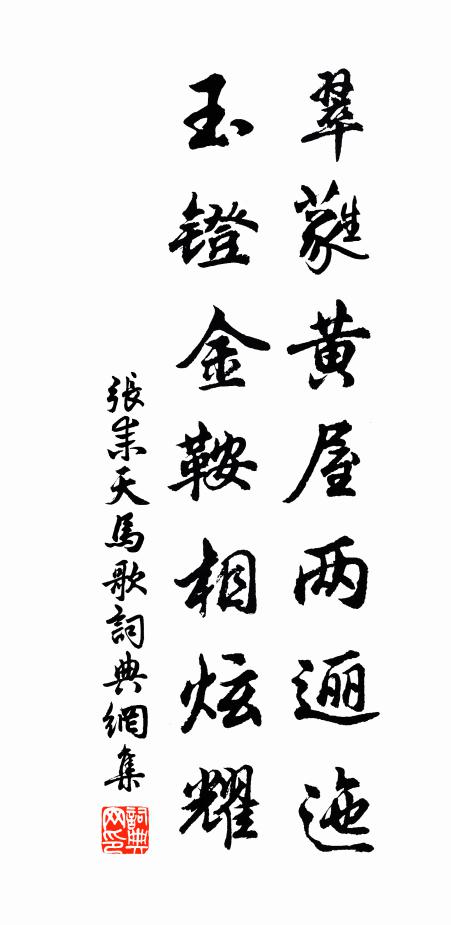 翠蕤黄屋两逦迤
玉鐙金鞍相炫耀
張耒天馬歌詞典網集
詞典
网印